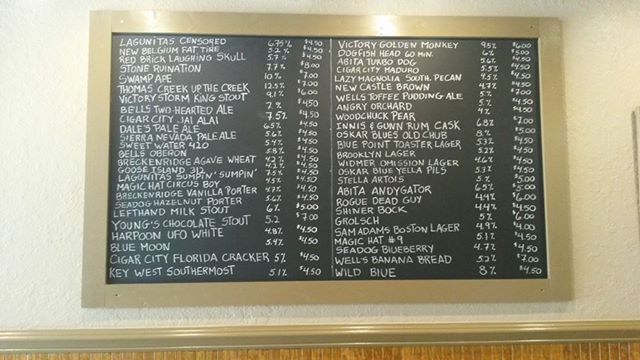 LAGUNITAS CENSORED 6.75% $4.50
NEW BELGIUM FAT TIRE 5.2% $4.50
RED BRICK LAUGHING SKULL 5.7% $4.50
STONE RUINATION 7.7% $8.00
SWAMP APE 10% $7.00
THOMAS CREEK UP THE CREEK 12.5% $7.00
VICTORY STORM KING STOUT 9.1% $6.00
BELLS TWO HEARTED ALE 7% $4.50
CIGAR CITY JAI ALAI 7.5% $4.50
DALE'S PALE ALE 6.5% $4.50
SIERRA NEVADA PALE ALE 5.6% $4.50
SWEET WATER 420 5.4% $4.50
BELLS OBERON 5.8% $4.50
BRECKENRIDGE AGAVE WHEAT 4.2% $4.50
GOOSE ISLAND 312 4.2% $4.50
LAGUNITAS SUMPIN' SUMPIN' 7.5% $4.50
MAGIC HAT CIRCUS BOY 4.5% $4.50
BRECKENRIDGE VANILLA PORTER 4.7% $4.50
SEADOG HAZELNUT PORTER 5.6% $4.50
LEFTHAND MILK STOUT 6% $5.00
YOUNG'S CHOCOLATE STOUT 5.2 $7.00
HARPOON UFO WHITE 4.8% $4.50
BLUE MOON 5.4% $4.50
CIGAR CITY FLORIDA CRACKER 5% $4.50
KEY WEST SOUTHERMOST 5.1% $4.50
VICTORY GOLDEN MONKEY 9.5% $6.00
DOGFISH HEAD 60 MIN. 6% $5.00
ABITA TURBO DOG 5.6% $4.50
CIGAR CITY MADURO 5.5% $4.50
LAZY MAGNOLIA SOUTH. PECAN 4.5% $4.50
NEW CASTLE BROWN 4.7% $4.50
WELLS TOFFEE PUDDING ALE 5.% $7.00
ANGRY ORCHARD 5% $4.50
WOODCHUCK PEAR 4% $4.50
INNIS & GUNN RUM CASK 6.8% $7.00
OSKAR BLUES OLD CHUB 8% $5.00
BLUE POINT TOASTER LAGER 5.3% $4.50
BROOKLYN LAGER 5.2% $4.50
WIDMER OMISSION LAGER 4.6% $4.50
OSKAR BLUE YELLA PILS 5.3% $4.50
STELLA ARTOIS 5% $5.00
ABITA ANDYGATOR
ROGUE DEAD GUY
SHINER BOCK
GROLSCH
SAM ADAMS BOSTON LAGER 4.9% $4.00
MAGIC HAT #9 5.1% $4.50
SEADOG BLUEBERRY 4.7% $4.50
WELL'S BANANA BREAD 5.2% $7.00
WILD BLUE 8% $4.50